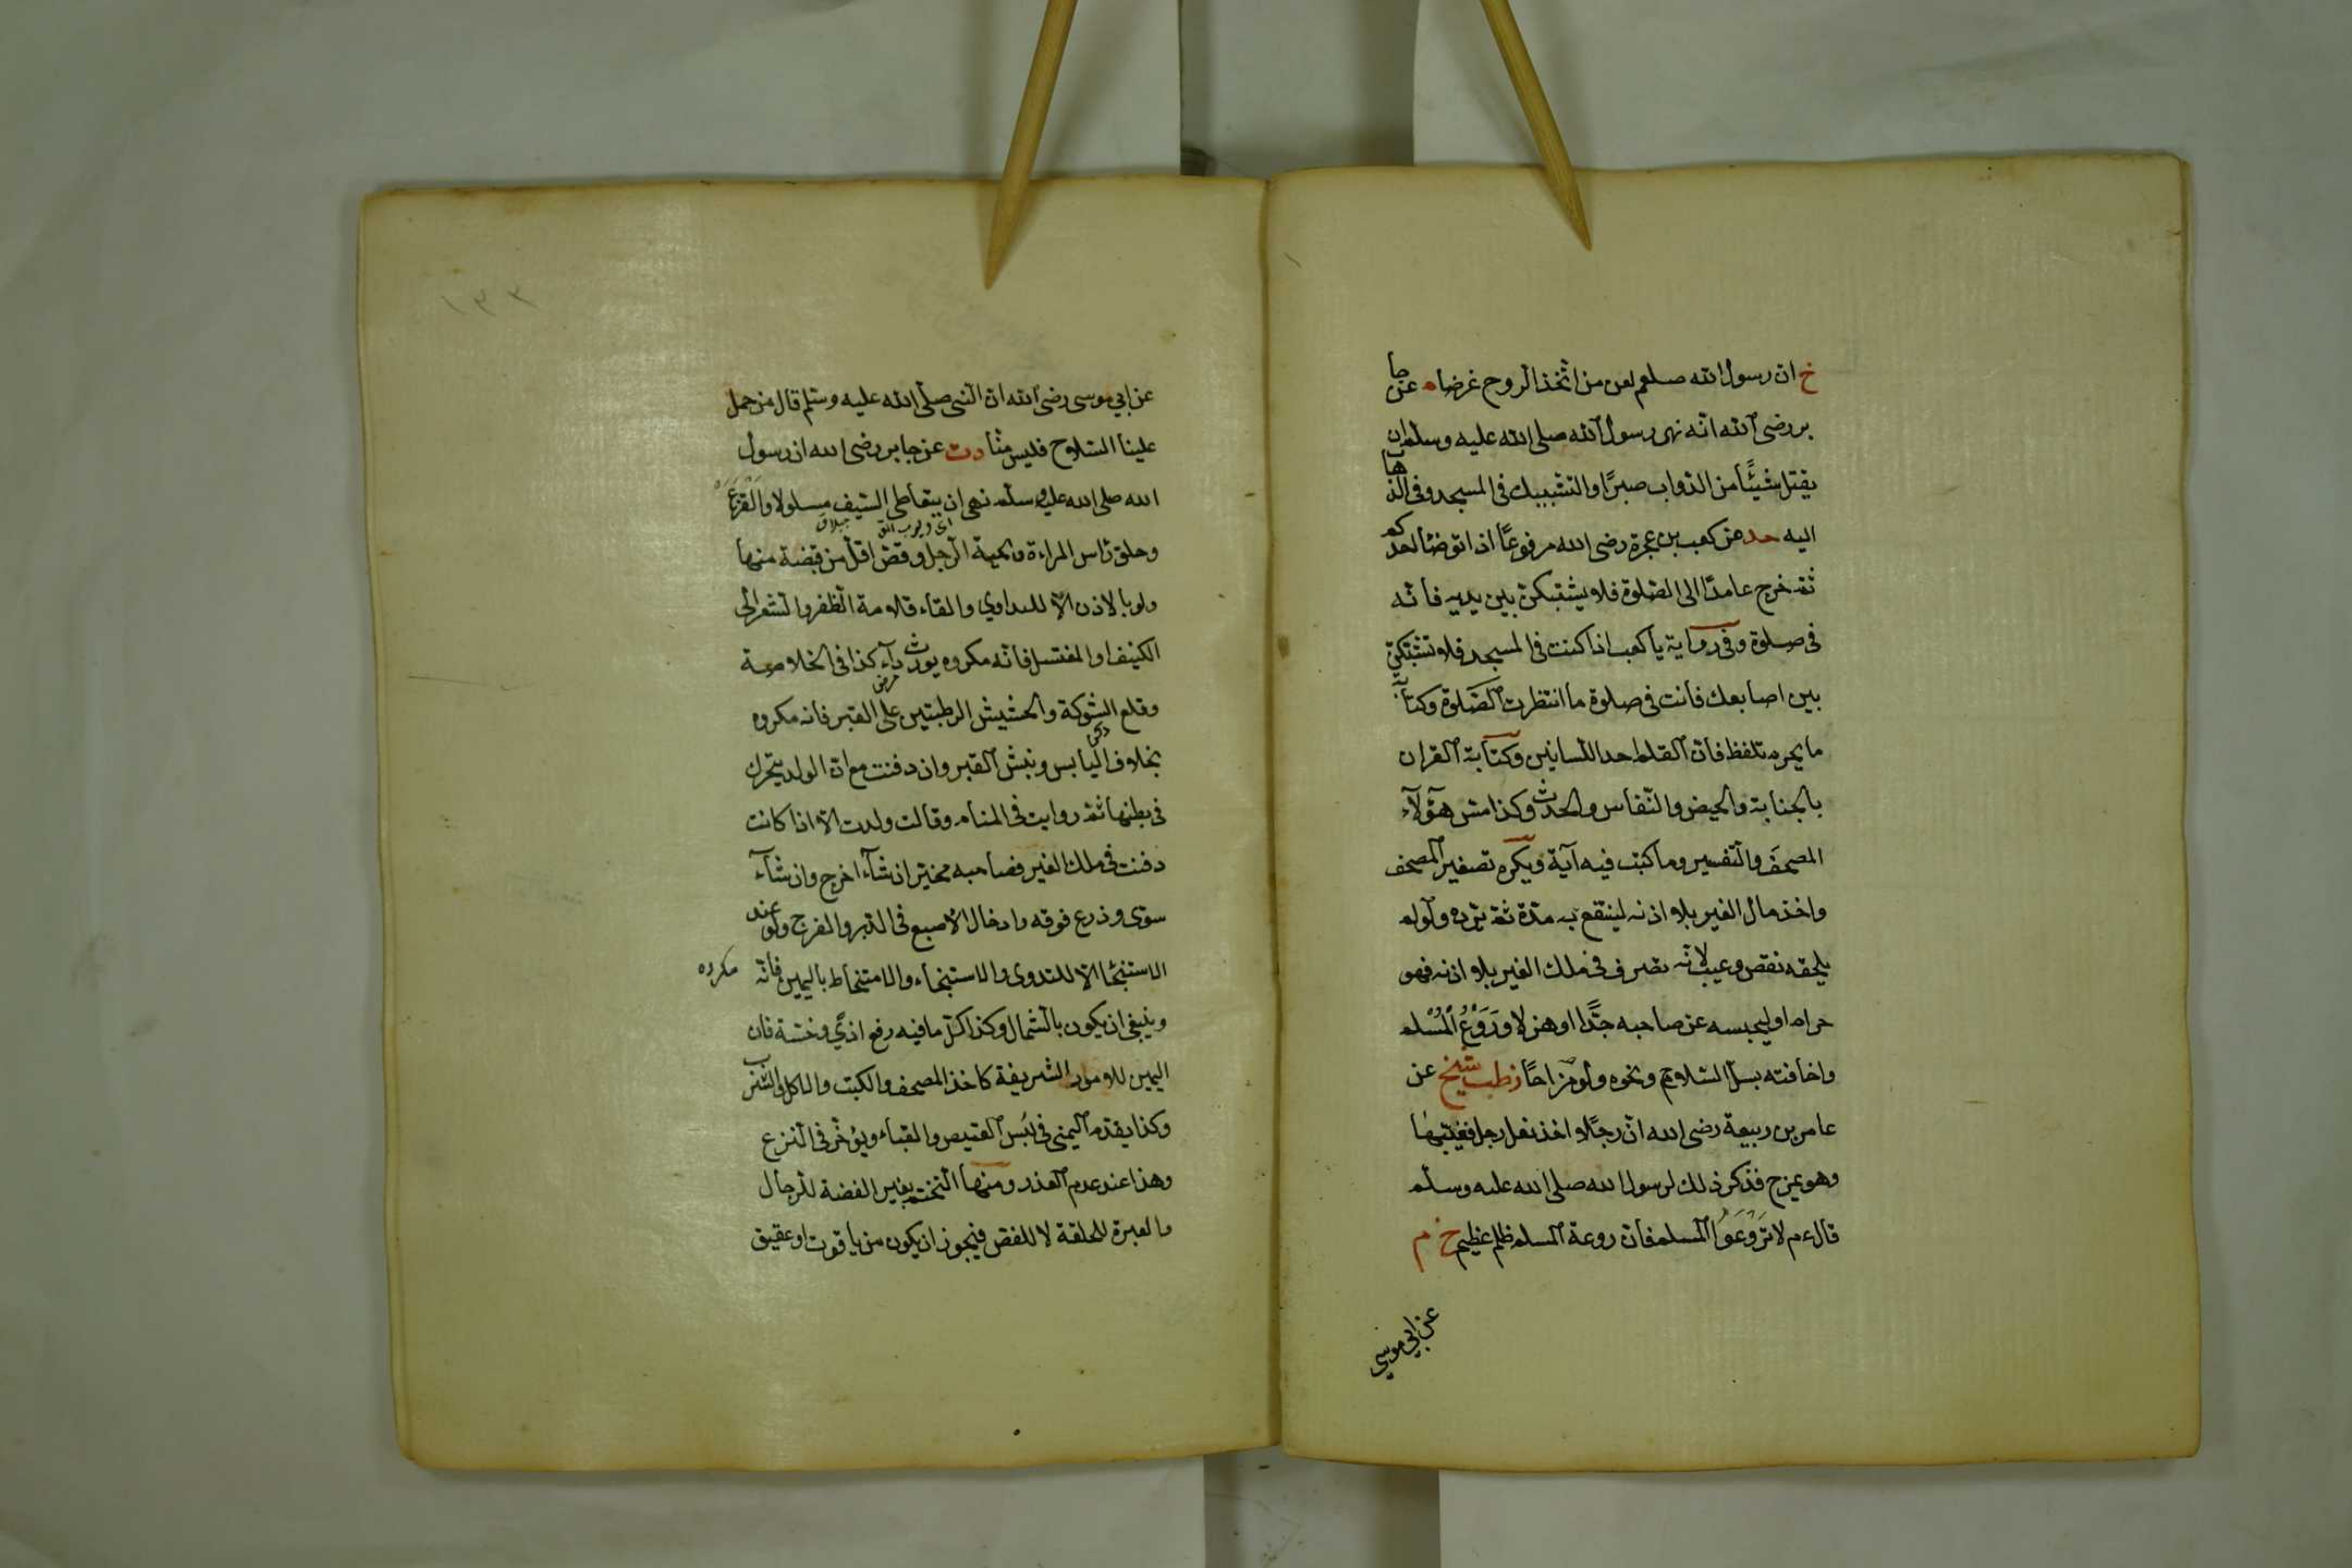 خ ان رسول الله صلعم لعن من اتخذ الروح غرضا ه عن جا
بر رضى الله انه نهى رسول الله صلى الله عليه وسلم ان
يقتل شيئًا من الدواب صبرًا والتشبيك فى المسجد وفى الذها
اليه حد عن كعب بن عجرة رضى الله مرفوعًا اذا توضأ احدكم
ثم خرج عامدًا الى الصلوة فلا يشتبكن بين يديه فانه
فى صلوة وفى رواية يا كعب اذا كنت فى المسجد فلا تشتبكن
بين اصابعك فانت فى صلوة ما انتظرت الصلوة وكتابة
ما يحرم تلفظ فان القلم احد اللسانين وكتابة القران
بالجنابة والحيض والنفاس والحدث وكذا مس هؤلاء
المصحف والتفسير وما كتب فيه آية ويكره تصغير المصحف
واخذ مال الغير بلا اذنه لينتفع به مدة ثم يرده ولو لم
يلحقه نقص وعيب لانه تصرف فى ملك الغير بلا اذنه فهو
حرام او ليحبسه عن صاحبه جدًّا او هزلا وروع المسلم
واخافته بسل السلاح ونحوه ولو مزاحًا ز طب شيخ عن
عامر بن ربيعة رضى الله ان رجلا اخذ نعل رجل فغيبها
وهو يمزح فذكر ذلك لرسول الله صلى الله عليه وسلم
قال ءم لا تروعوا المسلم فان روعة المسلم ظلم عظيم خ م
عن ابي موسى
١٣٣
عن ابي موسى رضى الله ان النبى صلى الله عليه وسلم قال من حمل
علينا السلاح فليس منا دت عن جابر رضى الله ان رسول
الله صلى الله عليه وسلم نهى ان يتعاطى السيف مسلولا والقزع
وحلق راس المراءة ولحية الرجل وقص اقل من قبضة منها
ولو بالاذن الا للتداوي والقاء قلامة الظفر والشعر الى
الكنيف او المغتسل فانه مكروه يورث داء كذا فى الخلاصة
مرض
وقلع الشوكة والحشيش الرطبتين على القبر فانه مكروه
بخلاف اليابس ونبش القبر وان دفنت مع ان الولد يتحرك
فى بطنها ثم روايت فى المنام وقالت ولدت الا اذا كانت
دفنت فى ملك الغير فصاحبه مخير ان شاء اخرج وان شاء
سوى وذرع فوقه وادخال الاصبع فى الدبر والفرج ولو عند
الاستنجا الا للتدوى والاستنجاء والامتخاط باليمين فانه مكروه
وينبغى ان يكون بالشمال وكذا كل ما فيه رفع اذى وخسة فان
اليمين للامور الشريفة كاخذ المصحف والكتب والاكل والشرب
وكذا يقدم اليمنى فى لبس القميص والقباء ويؤخر فى النزع
وهذا عند عدم العذر ومنها التختم بغير الفضة للرجال
والعبرة للحلقة لا للفص فيجوز ان يكون من ياقوت او عقيق